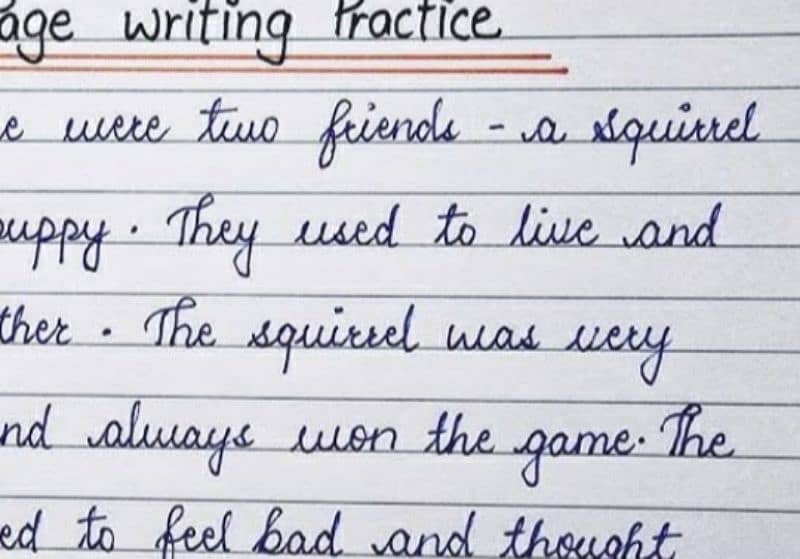 age writing Practice
e were two friends - a squirrel
puppy. They used to live and
ther. The squirrel was very
nd always won the game. The
ed to feel bad and thought